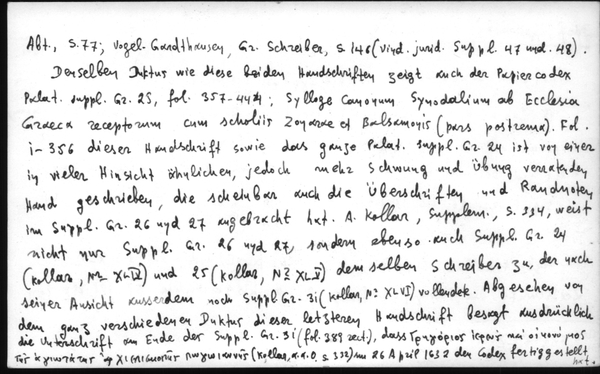 Abt., S.77; Vogel-Gardthausen, Gr. Schreiber, S.146 (vind. jurid. Suppl. 47 und. 48).
Denselben Duktus wie diese beiden Handschriften zeigt auch der Papiercodex
Palat. suppl. Gr. 25, fol. 357-444; Sylloge Canonum Synodalium ab Ecclesia
Graeca receptorum cum scholiis Zonarae et Balsamonis (pars postrema). Fol.
1-356 dieser Handschrift sowie das ganze Palat. suppl. Gr. 24 ist von einer
in vieler Hinsicht ähnlichen, jedoch mehr Schwung und Übung verratenden
Hand geschrieben, die scheinbar auch die Überschriften und Randnoten
im Suppl. Gr. 26 und 27 angebracht hat. A. Kollar, Supplem., S. 334, weist
nicht nur Suppl. Gr. 26 und 27, sondern ebenso auch Suppl. Gr. 24
(Kollar, Nº XLIV) und 25 (Kollar, Nº XLV) demselben Schreiber zu, der nach
seiner Ansicht ausserdem noch Suppl. Gr. 31 (Kollar, Nº XLVI) vollendete. Abgesehen von
dem ganz verschiedenen Duktus dieser letzteren Handschrift besagt ausdrücklich
die Unterschrift am Ende der Suppl. Gr. 31 (fol. 389 rect), dass Γρηγόριος ἱερεὺς καὶ οἰκονόμος
τῆς ἁγιωτάτης (Kollar, a.a.O. S. 332) am 26 April 1632 den Codex fertiggestellt
hat.